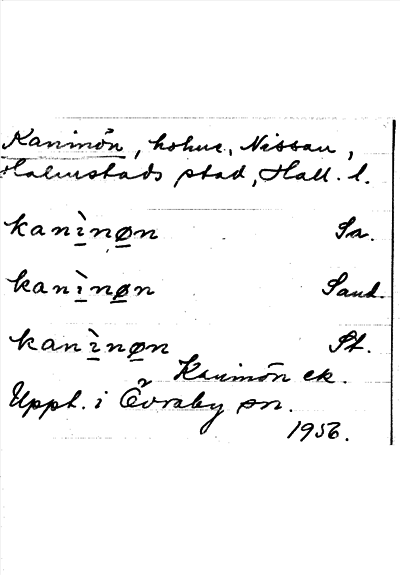 Kaninön, holme, Nissan,
Halmstads stad, Hall. l.
kanìnøn Sa.
kanìnøn Sand.
kanìnøn St.
Kaninön ek.
Uppt. i Övraby sn.
1956.